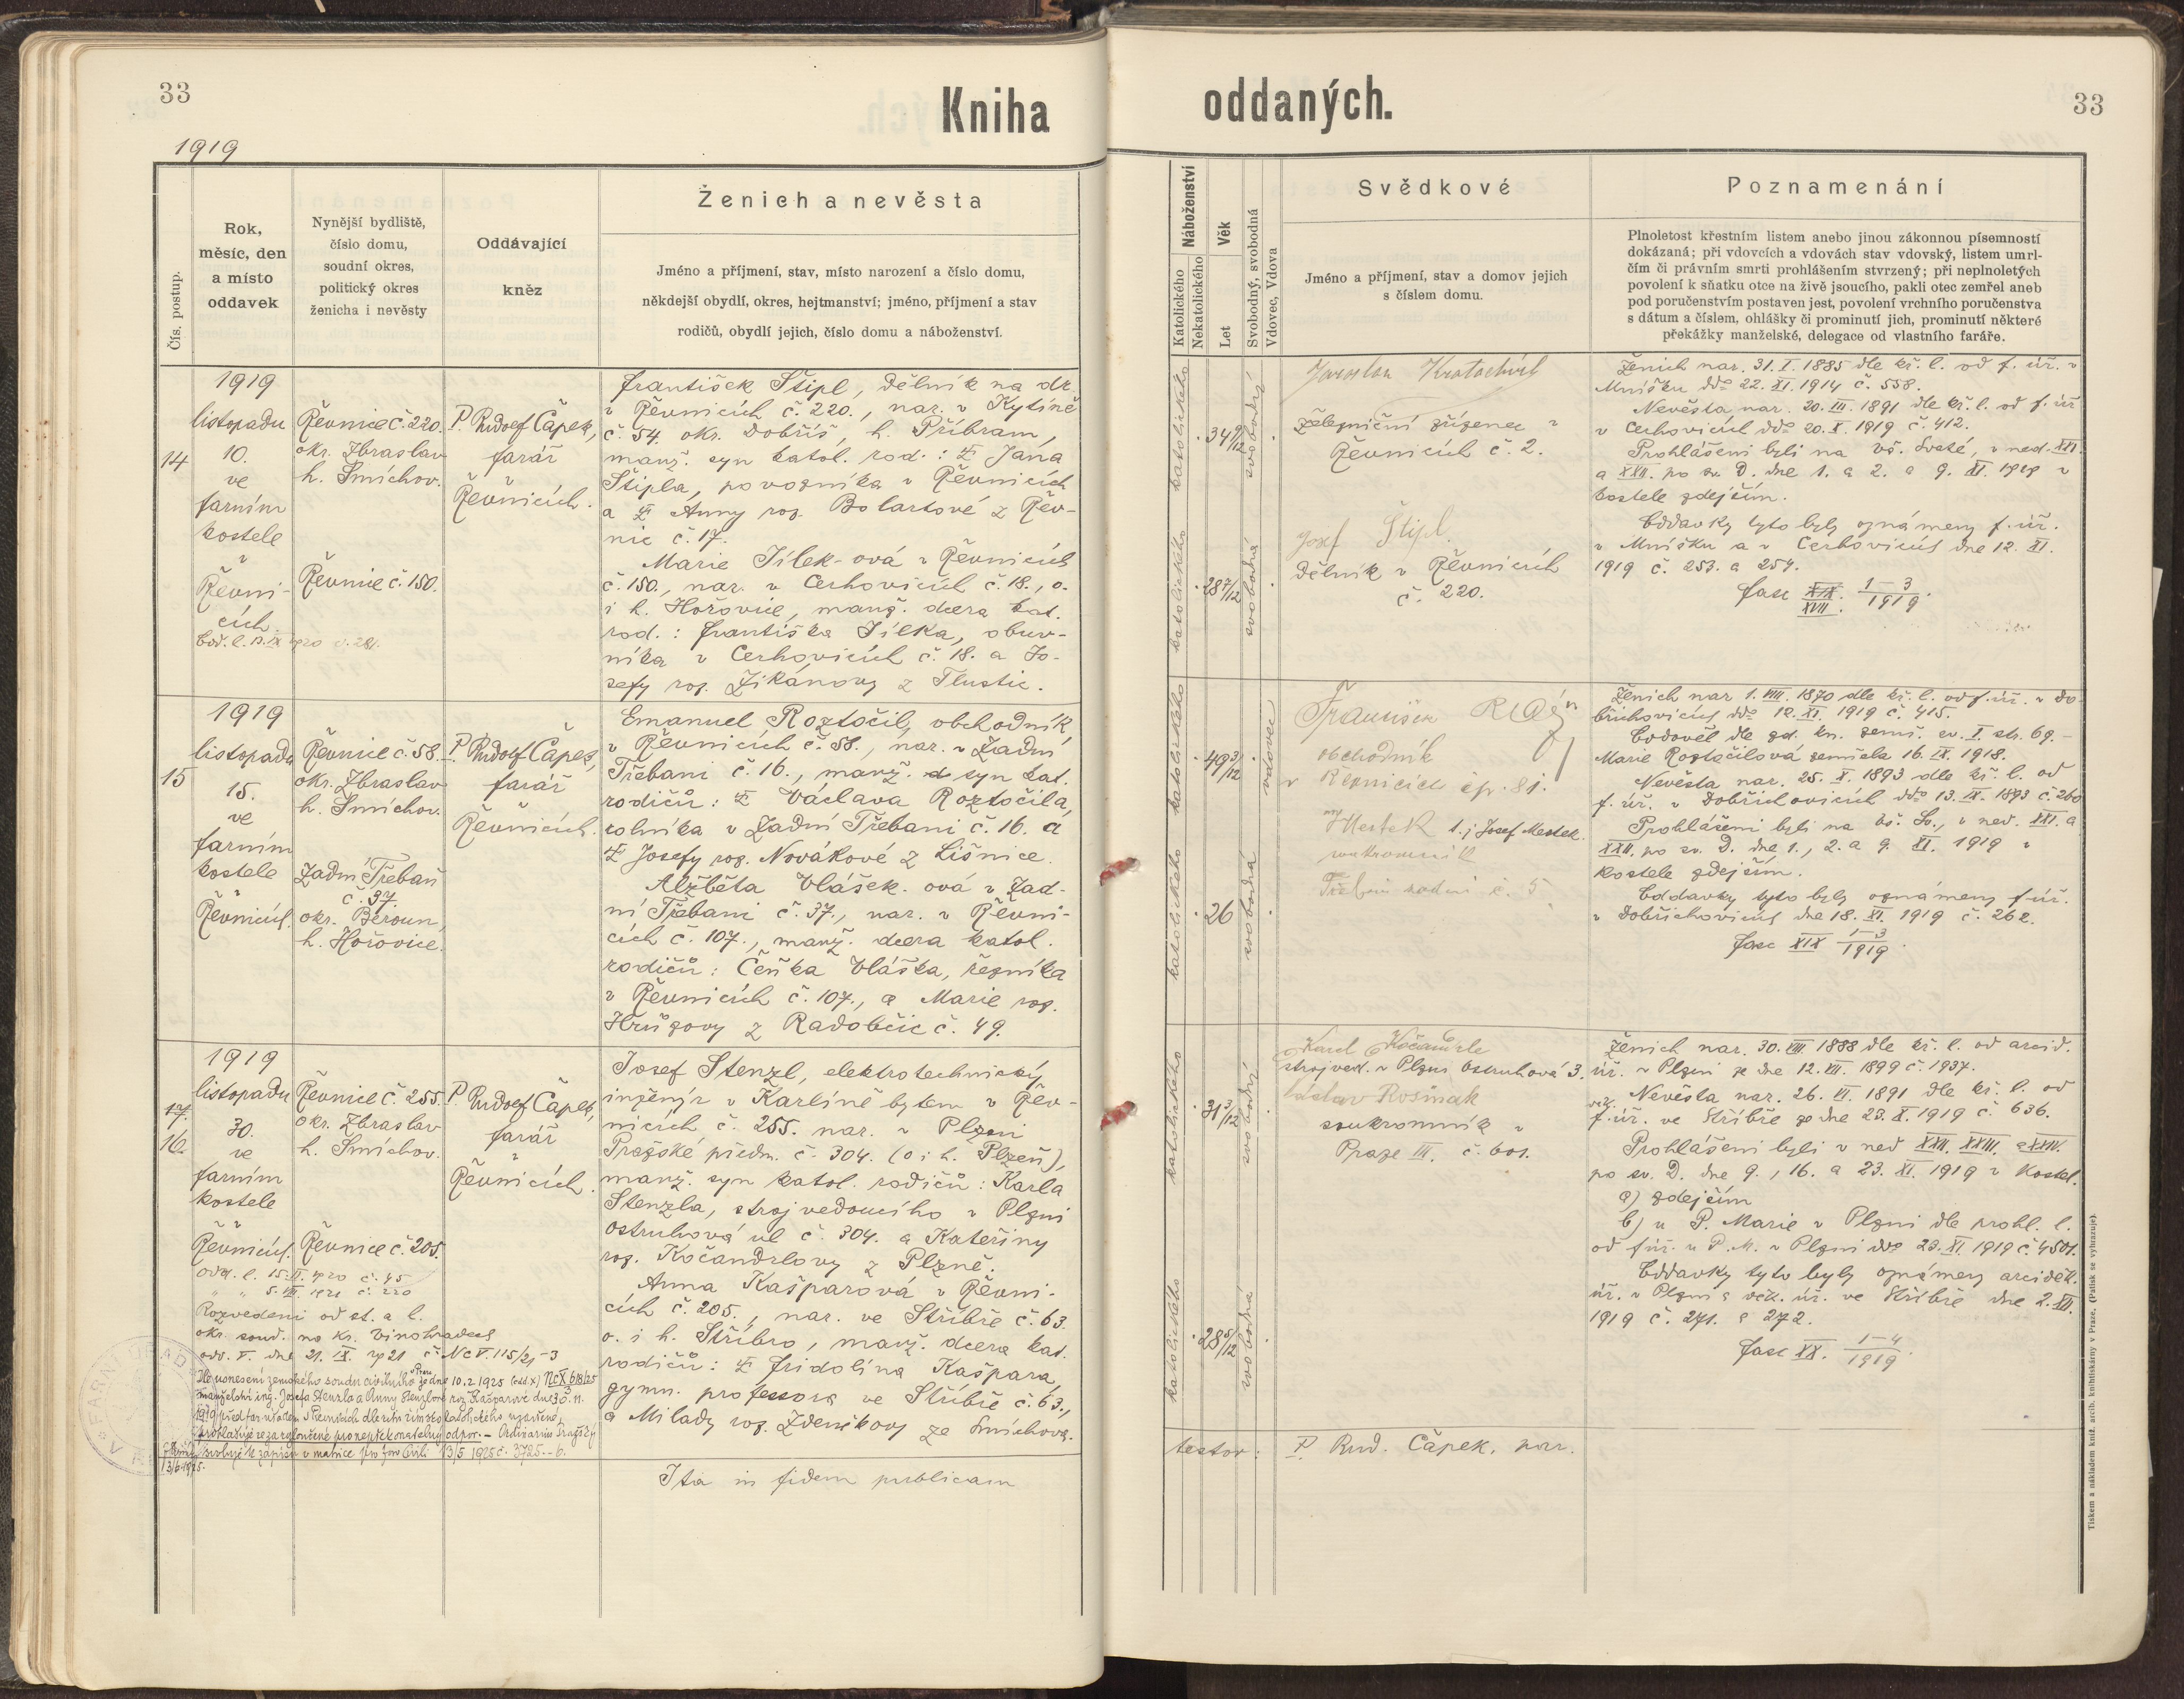 33
Kniha
1919
Čís. postup.
Rok,
měsíc, den
a místo
oddavek
Nynější bydliště,
číslo domu,
soudní okres,
politický okres
ženicha i nevěsty
Oddávající
kněz
Ženich a nevěsta
Jméno a příjmení, stav, místo narození a číslo domu,
někdejší obydlí, okres, hejtmanství; jméno, příjmení a stav
rodičů, obydlí jejich, číslo domu a náboženství.
14
1919
listopadu
10.
ve
farním
kostele
v
Řevni-
cích.
Řevnice č. 220.
okr. Zbraslav
h. Smíchov.
Řevnice č. 150.
P. Rudolf Čapek,
farář
v
Řevnicích.
František Štipl, dělník na dr.
v Řevnicích č. 220., nar. v Kytíně
č. 54. okr. Dobříš, h. Příbram,
manž. syn katol. rod.: Jana
Štipla, povozníka v Řevnicích
a Anny roz. Bolartové z Řev-
nic č. 17.
Marie Jílek-ová v Řevnicích
č. 150., nar. v Cerhovicích č. 18., o.
i h. Hořovice, manž. dcera kat.
rod.: Františka Jílka, obuv-
níka v Cerhovicích č. 18. a Jo-
sefy roz. Zikánovy z Tlustic.
15
1919
listopadu
15.
ve
farním
kostele
v
Řevnicích.
Řevnice č. 58.
okr. Zbraslav
h. Smíchov.
Zadní Třebaň
č. 37.
okr. Beroun,
h. Hořovice.
P. Rudolf Čapek,
farář
v
Řevnicích.
Emanuel Roztočil, obchodník
v Řevnicích č. 58., nar. v Zadní
Třebani č. 16., manž. syn kat.
rodičů: Václava Roztočila,
rolníka v Zadní Třebani č. 16. a
Josefy roz. Novákové z Lišnice.
Alžběta Vlášek-ová v Zad-
ní Třebani č. 37., nar. v Řevni-
cích č. 107., manž. dcera katol.
rodičů: Čeňka Vláška, řezníka
v Řevnicích č. 107., a Marie roz.
Hrůzovy z Radobčic č. 49.
17.
16.
1919
listopadu
30.
ve
farním
kostele
v
Řevnicích.
Řevnice č. 255.
okr. Zbraslav
h. Smíchov.
Řevnice č. 205.
P. Rudolf Čapek,
farář
v
Řevnicích.
Josef Stenzl, elektrotechnický
inženýr v Karlíně bytem v Řev-
nicích č. 255. nar. v Plzni
Pražské předm. č. 304. (o i h. Plzeň),
manž. syn katol. rodičů: Karla
Stenzla, strojvedoucího v Plzni
Ostruhová ul č. 304. a Kateřiny
roz. Kočandrlovy z Plzně.
Anna Kašparová v Řevni-
cích č. 205., nar. ve Stříbře č. 63.
o. i h. Stříbro, manž. dcera kat.
rodičů: Fridolína Kašpara,
gymn. professora ve Stříbře č. 63.,
a Milady roz. Zdeňkovy ze Smíchova.
Rozvedeni od st. a l.
okr. soud. na Kr. Vinohradech
odd. V. dne 21. IX. 1921 č. Nc V. 115/21-3
Dle usnesení zemského soudu civilního v Praze ze dne 10.2.1925 (odd. X) Nc X 618/25
manželství ing. Josefa Stenzla a Anny Stenzlové roz. Kašparové dne 30. 11.
1919 před far. úřadem v Řevnicích dle ritu římskokatolického uzavřené,
prohlašuje se za rozloučené pro nepřekonatelný odpor. — Ordinariát Pražský
svoluje k zápisu v matrice pro foro civili 13/5 1925 č. 3725.-6.
Ita in fidem publicam
oddaných.
33
Náboženství
Katolického
Nekatolického
Věk
Let
Svobodný, svobodná
Vdovec, Vdova
Svědkové
Jméno a příjmení, stav a domov jejich
s číslem domu.
Poznamenání
Plnoletost křestním listem anebo jinou zákonnou písemností
dokázaná; při vdovcích a vdovách stav vdovský, listem umrl-
čím či právním smrti prohlášením stvrzený; při neplnoletých
povolení k sňatku otce na živě jsoucího, pakli otec zemřel aneb
pod poručenstvím postaven jest, povolení vrchního poručenstva
s dátum a číslem, ohlášky či prominutí jich, prominutí některé
překážky manželské, delegace od vlastního faráře.
katolického
34 9/12
svobodný
katolického
28 7/12
svobodná
Jaroslav Kratochvíl
železniční zřízenec v
Řevnicích č. 2.
Josef Štipl
dělník v Řevnicích
č. 220.
Ženich nar. 31. I. 1885 dle kř. l. od f. úř. v
Mníšku ddo 22. XI. 1914 č. 558.
Nevěsta nar. 20. III. 1891 dle kř. l. od f. úř
v Cerhovicích ddo 20. X. 1919 č. 412.
Prohlášeni byli na Vš. Svaté, v ned. XXI.
a XXII. po sv. D. dne 1. a 2. a 9. XI. 1919 v
kostele zdejším.
Oddavky tyto byly oznámeny f. úř.
v Mníšku a v Cerhovicích dne 12. XI.
1919 č. 253. a 254.
fasc XIX. XVIII. 1-3/1919.
katolického
49 3/12
vdovec
katolického
26
svobodná
František
obchodník
v Řevnicích čp. 81.
Mestek t.j. Josef Mestek.
soukromník
Třebaň zadní č. 5
Ženich nar. 1. VIII. 1870 dle kř. l. od f. úř. v Do-
břichovicích ddo 12. XI. 1919 č. 415.
Ovdověl dle zd. kn. zemř. sv. I. str. 69.-
Marie Roztočilová zemřela 16. IX. 1918.
Nevěsta nar. 25. X. 1893 dle kř. l. od
f. úř. v Dobřichovicích ddo 13. IX. 1893 č. 260
Prohlášeni byli na Vš. Sv., v ned. XXI. a
XXII. po sv. D. dne 1., 2. a 9. XI. 1919 v
kostele zdejším.
Oddavky tyto byly oznámeny f. úř.
v Dobřichovicích dne 18. XI. 1919 č. 262.
fasc XIX 1-3/1919.
katolického
31 3/12
svobodný
katolického
28 5/12
svobodná
Karel Kočandrle
strojved. v Plzni Ostruhová 3.
Rosinak
soukromník v
Praze III. č. 601.
Ženich nar. 30. VIII. 1888 dle kř. l. od arcid.
úř. v Plzni ze dne 12. VII. 1899 č. 1937.
Nevěsta nar. 26. VI. 1891 dle kř. l. od
f. úř. ve Stříbře ze dne 23. X. 1919 č. 636.
Prohlášeni byli v ned XXII. XXIII. a XXIV.
po sv. D. dne 9., 16. a 23. XI. 1919 v kostel.
a) zdejším
b) u P. Marie v Plzni dle prohl. l.
od f. úř. u P. M. v Plzni ddo 23. XI. 1919 č. 4501.
Oddavky tyto byly oznámeny arciděk.
úř. v Plzni a děk. úř. ve Stříbře dne 2. XII.
1919 č. 271. a 272.
fasc XX. 1-4/1919.
testor: P. Rud. Čapek, par.
Tiskem a nákladem kníž. arcib. knihtiskárny v Praze. (Patisk se vyhrazuje).